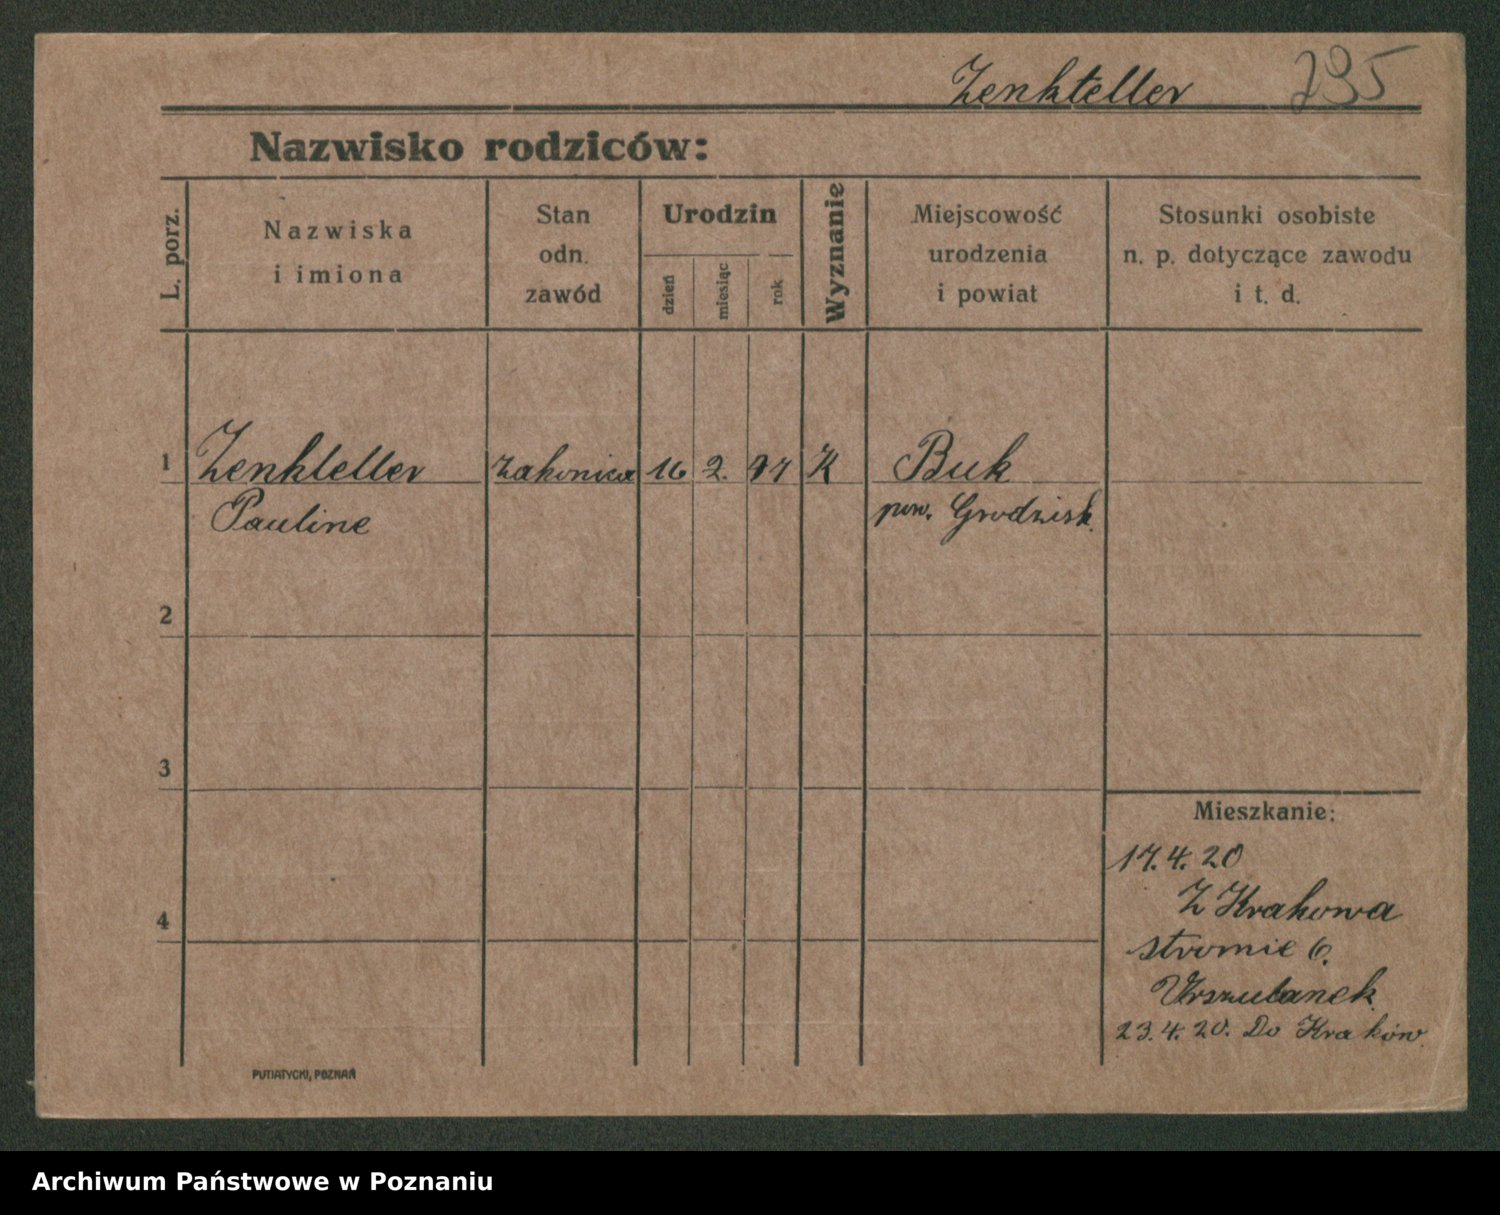 Zenkteller 795
Nazwisko rodziców:
L. porz.
Nazwiska
i imiona
Stan
odn.
zawód
Urodzin
dzień
miesiąc
rok
Wyznanie
Miejscowość
urodzenia
i powiat
Stosunki osobiste
n. p. dotyczące zawodu
i t. d.
1 Zenkteller zakonica 16 2. 97 K Buk
Pauline pow. Grodzisk.
2
3
Mieszkanie:
17.4.20
Z Krakowa
4
stromie 6.
Urszulanek
23.4.20. Do Kraków
PUTIATYCKI, POZNAŃ
Archiwum Państwowe w Poznaniu